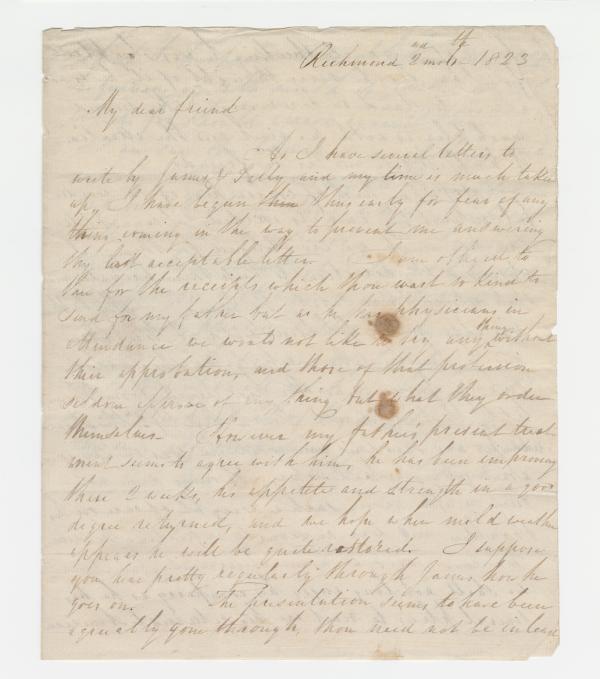 Richmond 2nd mo 4th 1823
My dear friend
As I have several letters to
write by James & Tally and my time is much taken
up, I have begun thus early for fear of any
thing coming in the way to prevent me answering
thy last acceptable letter. I am obliged to
thee for the receipts which thou wast so kind to
send for my father but as he has physicians in
attendance we would not like to try any thing without
their approbation, and those of that profession
seldom approve of any thing but what they order
themselves. However my father's present treat
ment seems to agree with him, he has been improving
these 2 weeks, his appetite and strength in a good
degree returned, and we hope when mild weather
appears he will be quite restored. I suppose
you hear pretty regularly through James how he
goes on. The presentation seems to have been
equally gone through, thou need not be in least